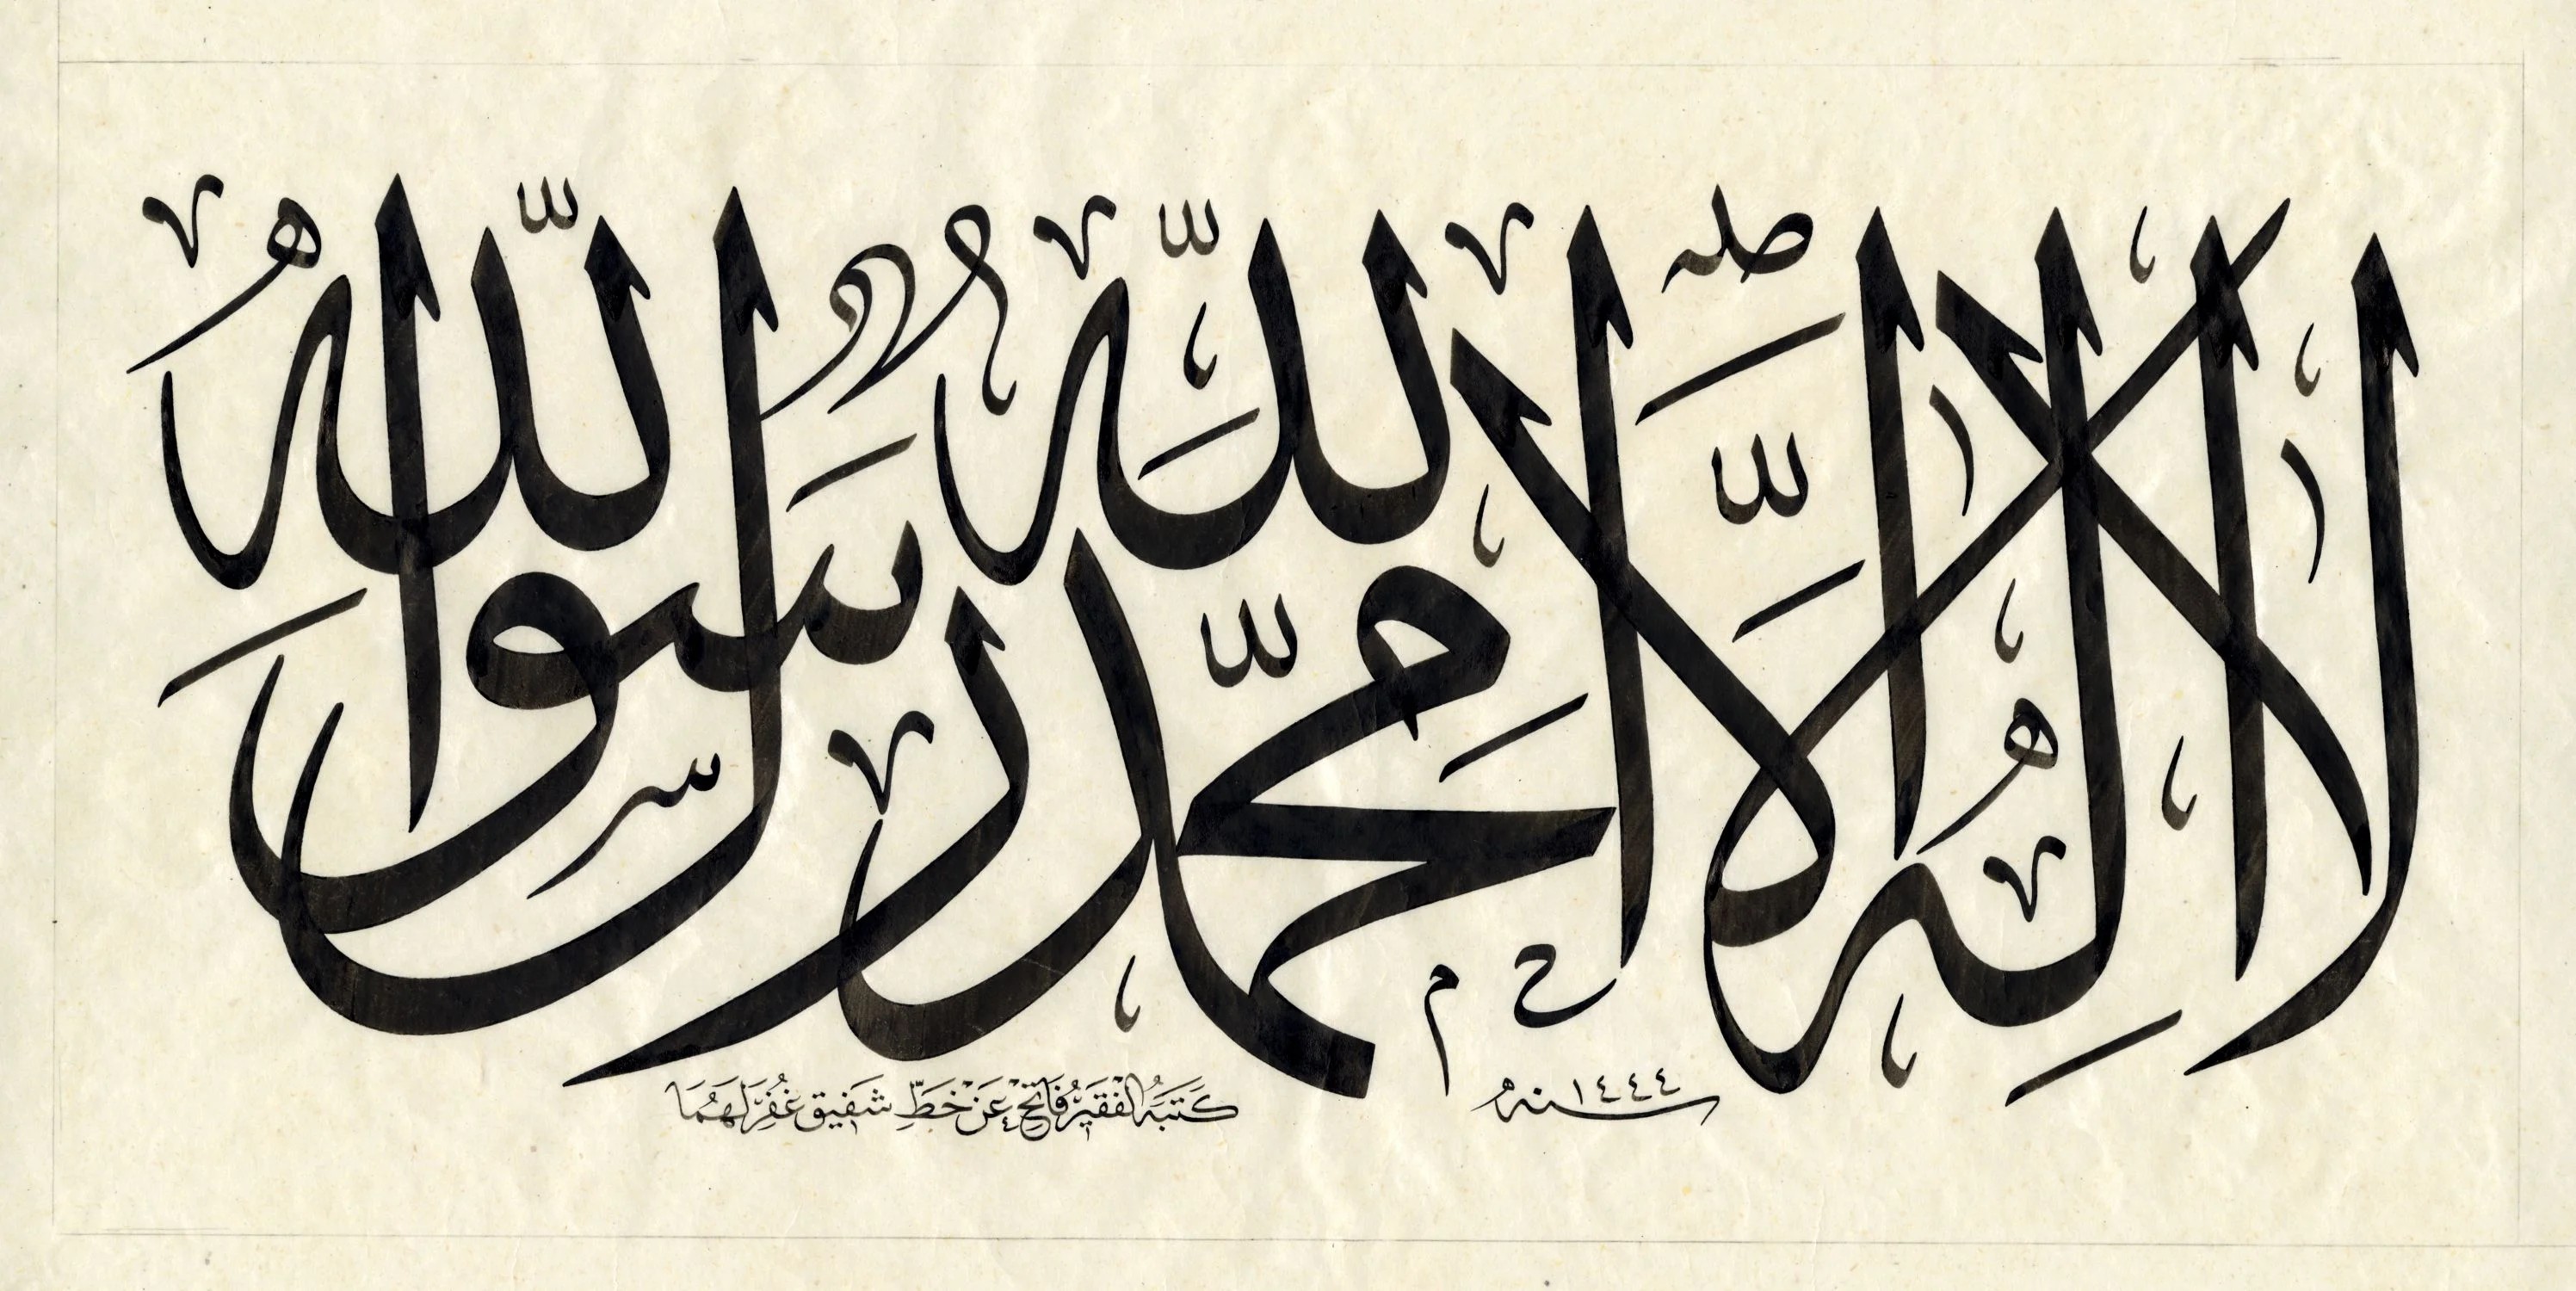 لا اله الا الله محمد رسول الله
سنه ١٤٤٤
كَتَبَهُ الْفَقِيرُ فَاتِحْ عَنْ خَطِّ شَفِيق غُفِرَ لَهُمَا